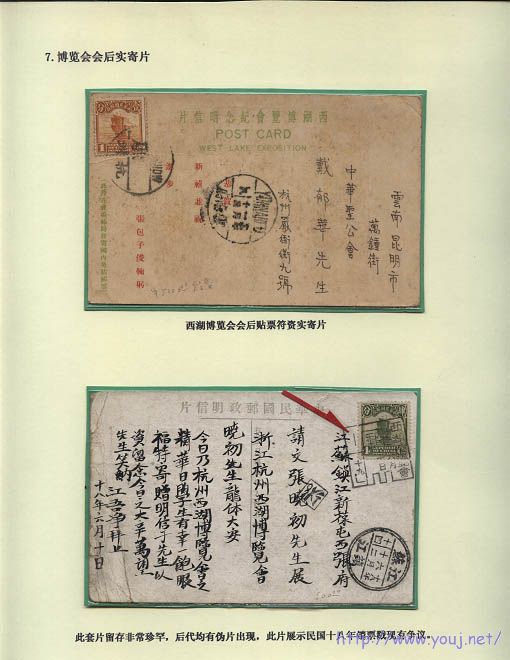 7.博览会会后实寄片
片信明念紀會覽博湖西
POST CARD
WEST LAKE EXPOSITION
雲南昆明市
萬鐘街
中華聖公會
戴郁華先生
杭州嚴衙街九號
張包子俊鞠躬
西湖博览会会后贴票符资实寄片
片信明政郵國民華中
江蘇鎮江新葆屯西張府
請交張曉初先生展
浙江杭州西湖博覽會
曉初先生龍体大安
今日乃杭州西湖博覽會之
精華日學生有幸一飽眼
福特寄贈明信片先生以
資留念今日之大羊萬望
先生笑納
十八年六月十日
鎮江
此套片留存非常珍罕，后代均有伪片出现，此片展示民国十八年销票戳现有争议。
http://www.youj.net/